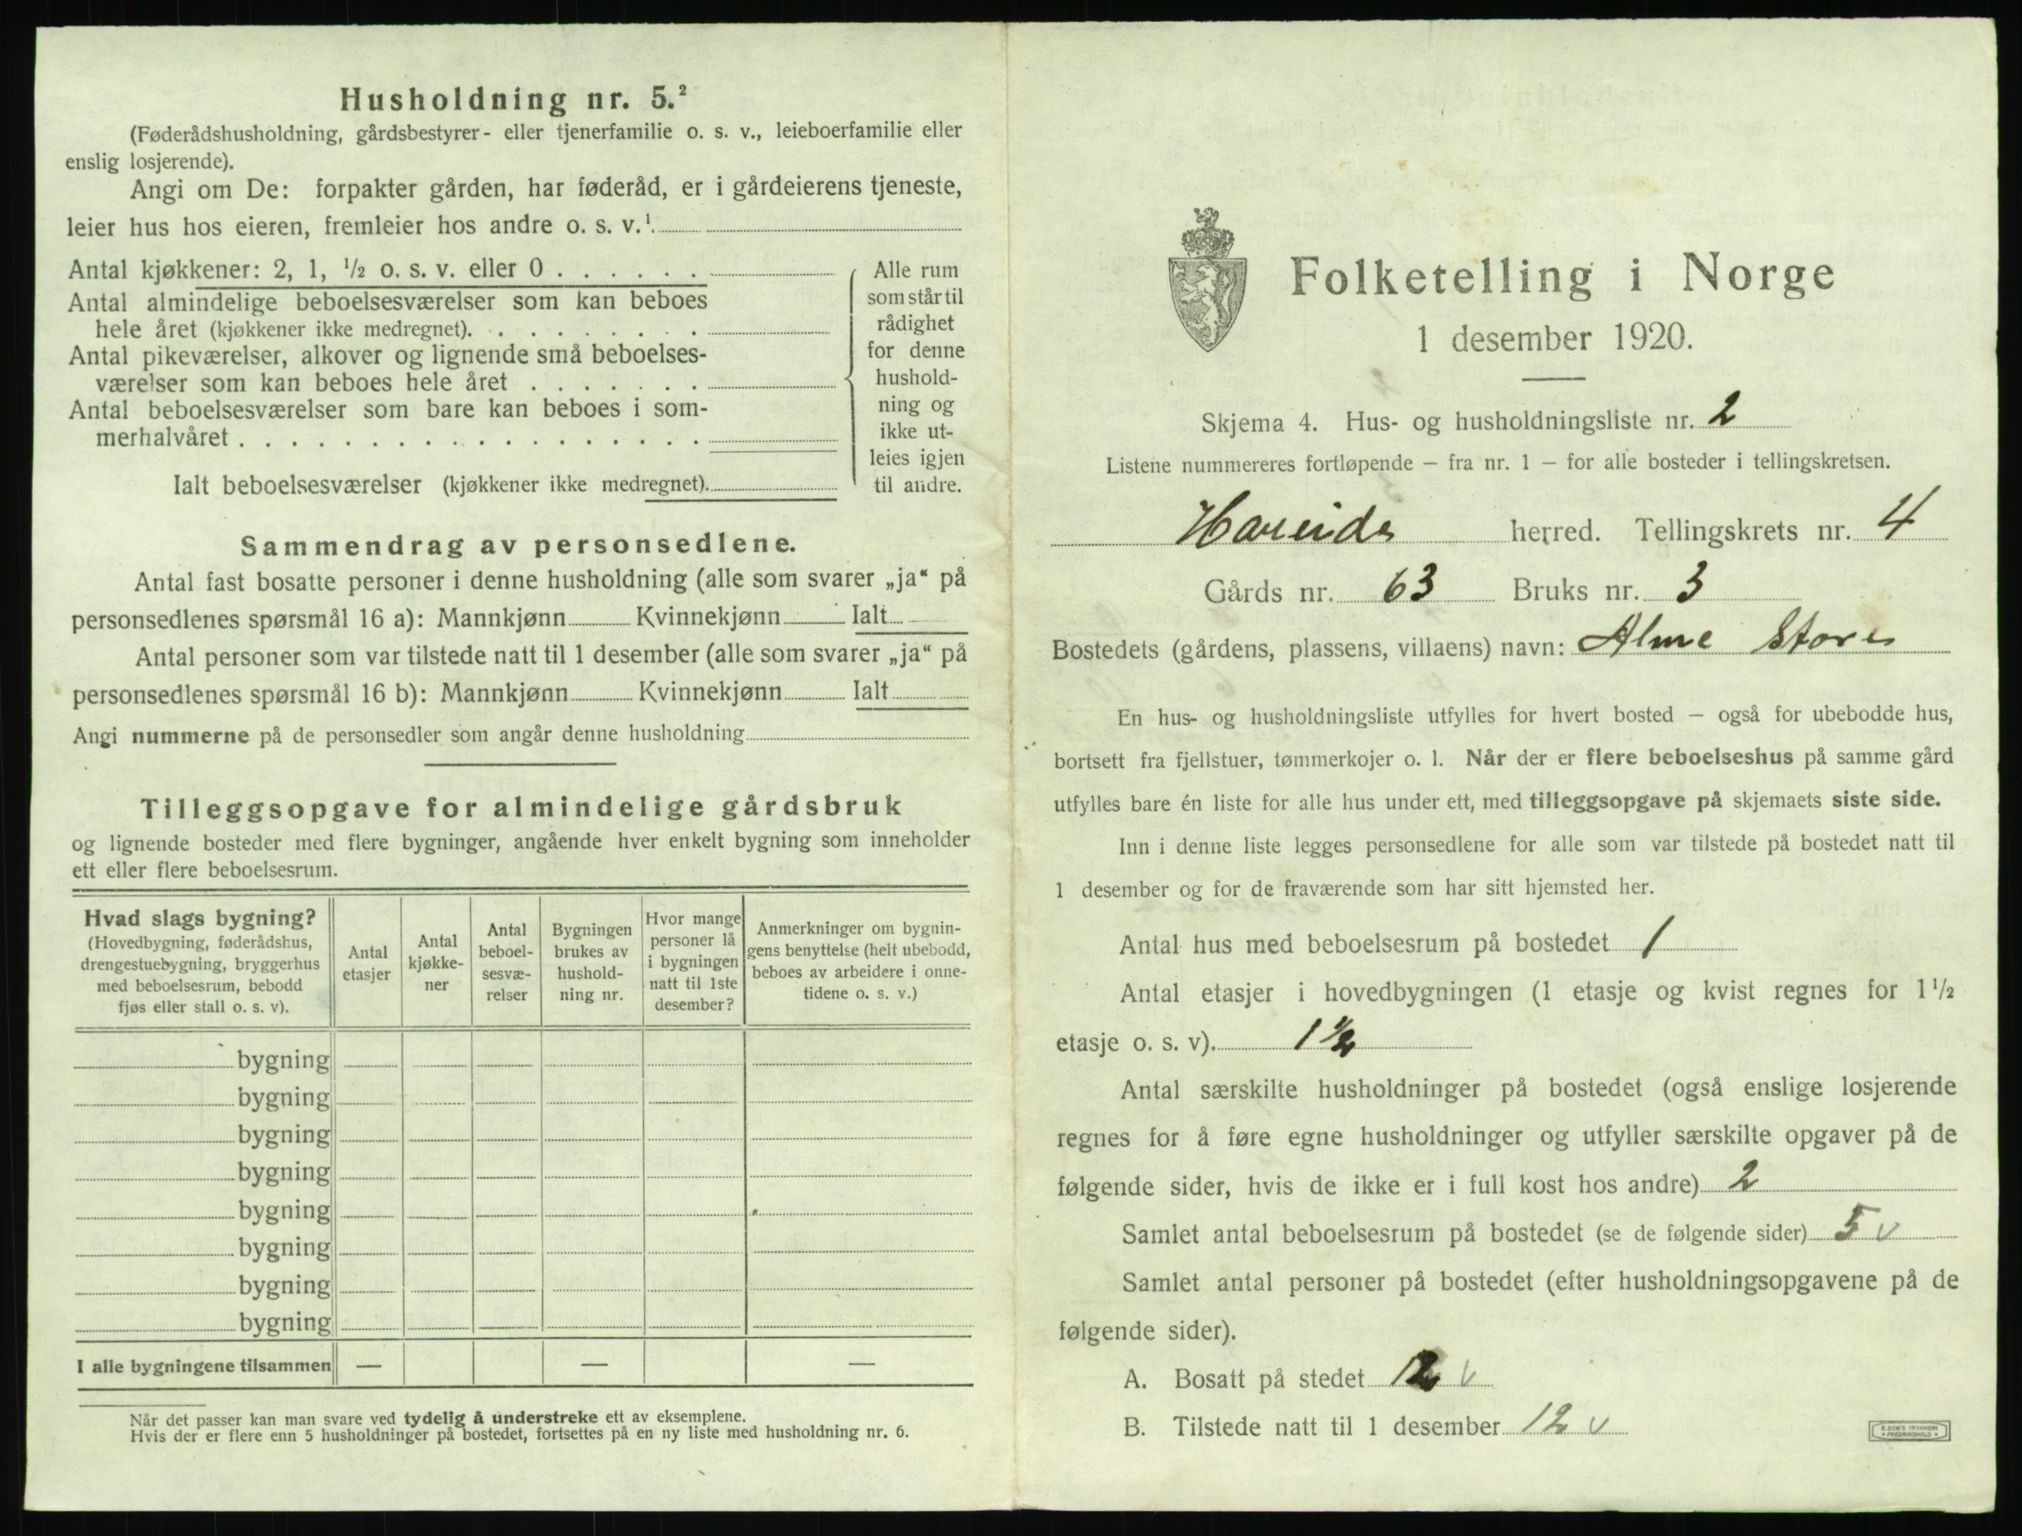 Husholdning nr. 5.²
(Føderådshusholdning, gårdsbestyrer- eller tjenerfamilie o. s. v., leieboerfamilie eller
enslig losjerende).
Angi om De: forpakter gården, har føderåd, er i gårdeierens tjeneste,
leier hus hos eieren, fremleier hos andre o. s. v.¹
Antal kjøkkener: 2, 1, ½ o. s. v. eller 0 . . . . . .
Antal almindelige beboelsesværelser som kan beboes
hele året (kjøkkener ikke medregnet). . . . . . . . .
Antal pikeværelser, alkover og lignende små beboelses-
værelser som kan beboes hele året . . . . . . .
Antal beboelsesværelser som bare kan beboes i som-
merhalvåret . . . . . . . . . . . . . . . . . .
Ialt beboelsesværelser (kjøkkener ikke medregnet).
Alle rum
som står til
rådighet
for denne
hushold-
ning og
ikke ut-
leies igjen
til andre.
Sammendrag av personsedlene.
Antal fast bosatte personer i denne husholdning (alle som svarer „ja“ på
personsedlenes spørsmål 16 a): Mannkjønn Kvinnekjønn Ialt
Antal personer som var tilstede natt til 1 desember (alle som svarer „ja“ på
personsedlenes spørsmål 16 b): Mannkjønn Kvinnekjønn Ialt
Angi nummerne på de personsedler som angår denne husholdning
Tilleggsopgave for almindelige gårdsbruk
og lignende bosteder med flere bygninger, angående hver enkelt bygning som inneholder
ett eller flere beboelsesrum.
Hvad slags bygning?
(Hovedbygning, føderådshus,
drengestuebygning, bryggerhus
med beboelsesrum, bebodd
fjøs eller stall o. s. v).
Antal
etasjer
Antal
kjøkke-
ner
Antal
beboel-
sesvæ-
relser
Bygningen
brukes av
hushold-
ning nr.
Hvor mange
personer lå
i bygningen
natt til 1ste
desember?
Anmerkninger om bygnin-
gens benyttelse (helt ubebodd,
beboes av arbeidere i onne-
tidene o. s. v.)
bygning
bygning
bygning
bygning
bygning
bygning
bygning
bygning
I alle bygningene tilsammen — — —
Når det passer kan man svare ved tydelig å understreke ett av eksemplene.
Hvis der er flere enn 5 husholdninger på bostedet, fortsettes på en ny liste med husholdning nr. 6.
Folketelling i Norge
1 desember 1920.
Skjema 4. Hus- og husholdningsliste nr. 2
Listene nummereres fortløpende – fra nr. 1 – for alle bosteder i tellingskretsen.
Hareide herred. Tellingskrets nr. 4
Gårds nr. 63 Bruks nr. 3
Bostedets (gårdens, plassens, villaens) navn: Alme Store
En hus- og husholdningsliste utfylles for hvert bosted – også for ubebodde hus,
bortsett fra fjellstuer, tømmerkojer o. l. Når der er flere beboelseshus på samme gård
utfylles bare én liste for alle hus under ett, med tilleggsopgave på skjemaets siste side.
Inn i denne liste legges personsedlene for alle som var tilstede på bostedet natt til
1 desember og for de fraværende som har sitt hjemsted her.
Antal hus med beboelsesrum på bostedet 1
Antal etasjer i hovedbygningen (1 etasje og kvist regnes for 1½
etasje o. s. v). 1½
Antal særskilte husholdninger på bostedet (også enslige losjerende
regnes for å føre egne husholdninger og utfyller særskilte opgaver på de
følgende sider, hvis de ikke er i full kost hos andre) 2
Samlet antal beboelsesrum på bostedet (se de følgende sider) 5 v
Samlet antal personer på bostedet (efter husholdningsopgavene på de
følgende sider).
A. Bosatt på stedet 12 v
B. Tilstede natt til 1 desember 12 v